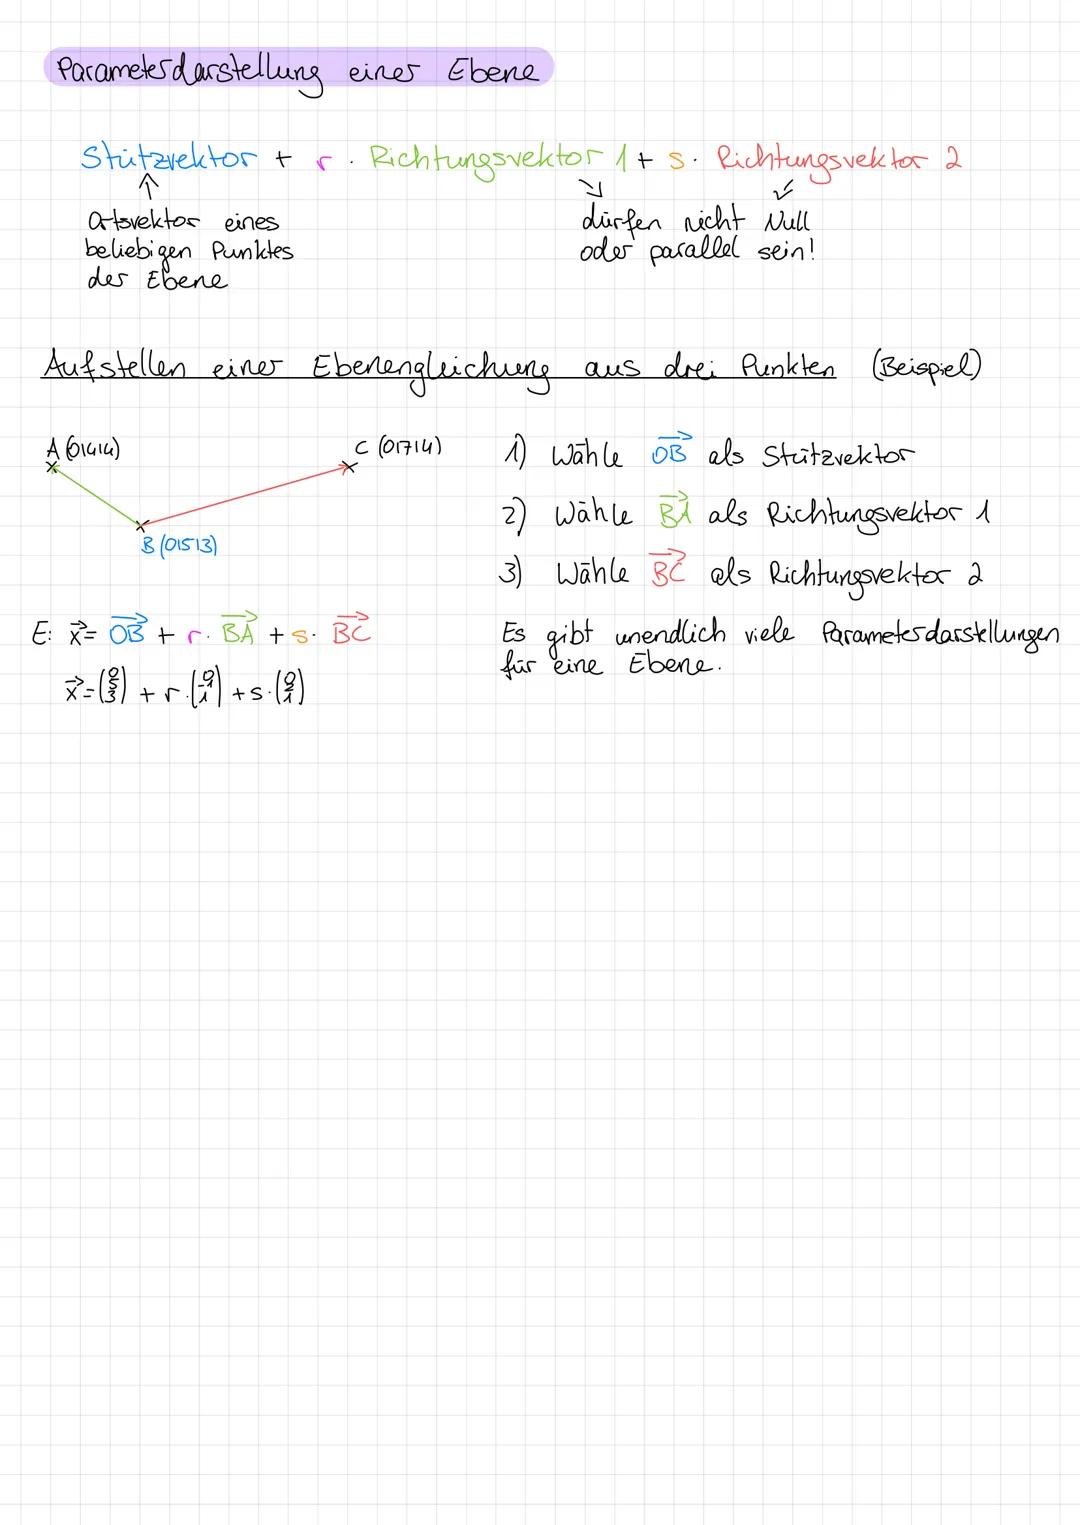 Parameterdarstellung einer Ebene
Stützvektor + r · Richtungsvektor 1 + s · Richtungsvektor 2
Ortsvektor eines
beliebigen Punktes
der Ebene
dürfen nicht Null
oder parallel sein!
Aufstellen einer Ebenengleichung aus drei Punkten (Beispiel)
A (0|4|4)
C (0|7|4)
B (0|5|3)
1) Wähle OB⃗ als Stützvektor
2) Wähle BA⃗ als Richtungsvektor 1
3) Wähle BC⃗ als Richtungsvektor 2
E: x⃗ = OB⃗ + r · BA⃗ + s · BC⃗
x⃗ = (0 5 3) + r · (0 -1 1) + s · (0 2 1)
Es gibt unendlich viele Parameterdarstellungen
für eine Ebene.